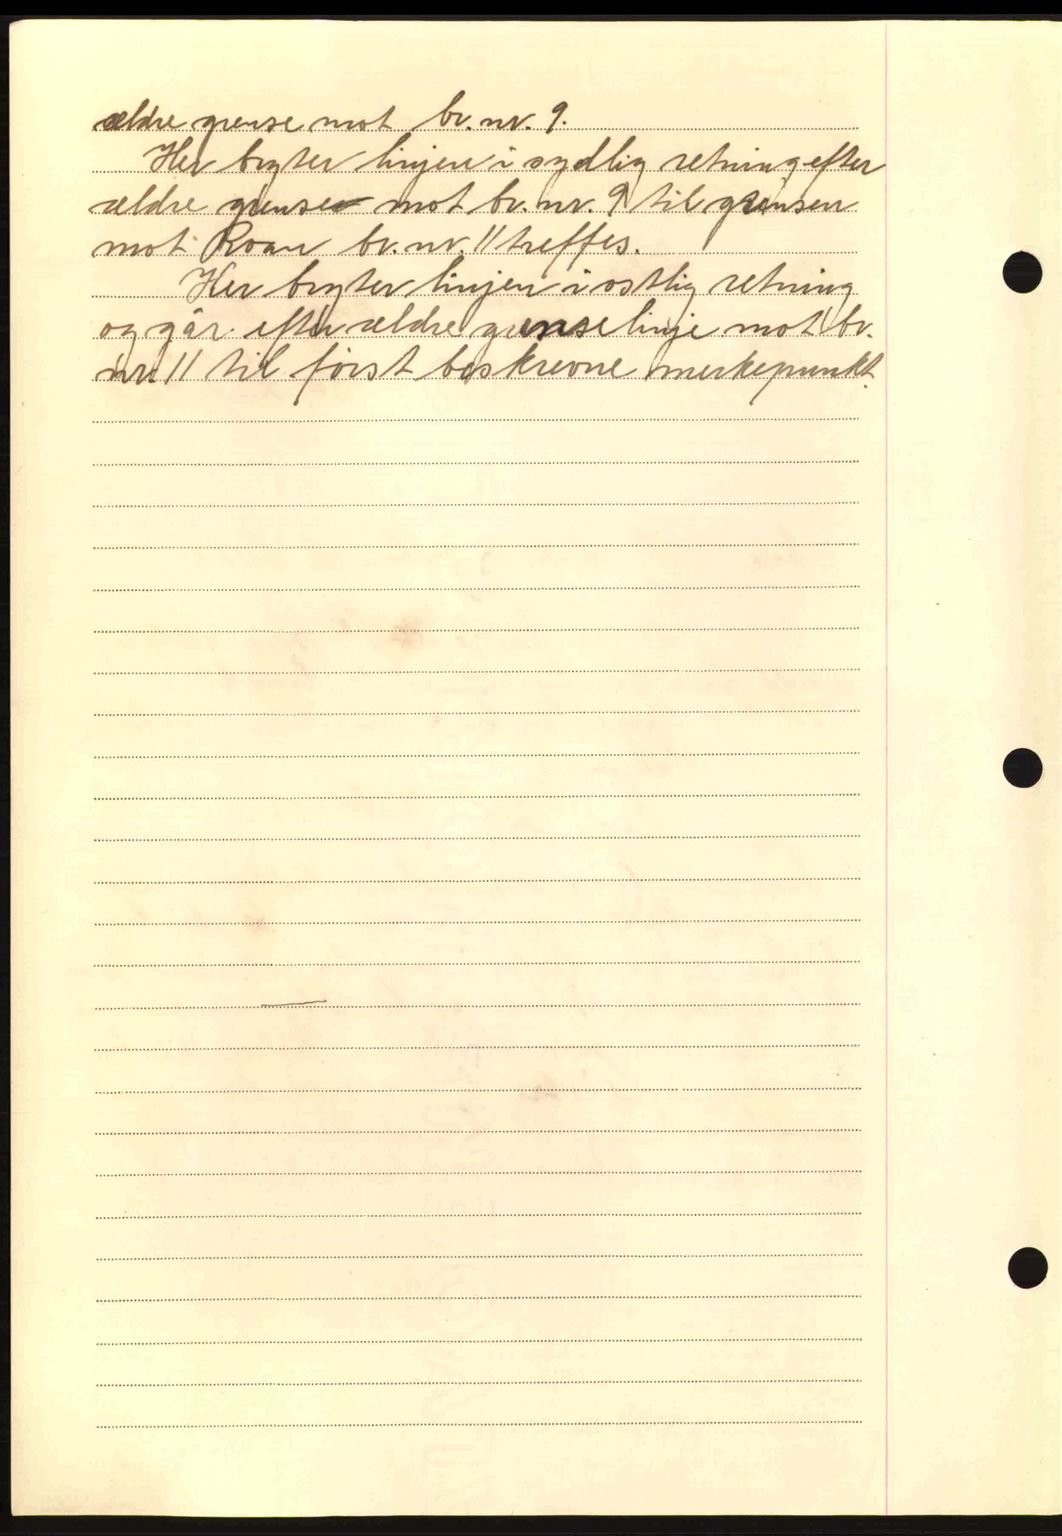 ældre grense mot br. nr. 9.
Her bryter linjen i sydlig retning efter
ældre grense mot br. nr. 9 til grensen
mot Roan br. nr. 11 treffes.
Her bryter linjen i østlig retning
og går efter ældre grenselinje mot br.
nr. 11 til først beskrevne merkepunkt.